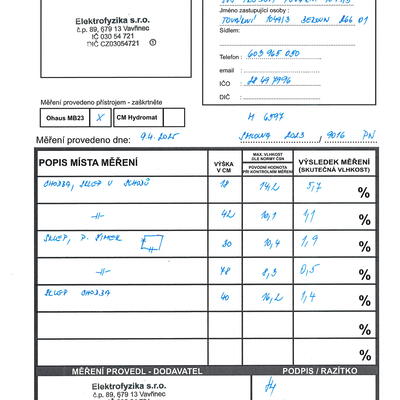 Elektrofyzika s.r.o.
č.p. 89, 679 13 Vavřinec
IČ 030 54 721
DIČ CZ03054721 ①
Jméno zastupující osoby :
TOVÁRNÍ 1044/3 BEROUN 266 01
Sídlem:
Telefon : 603 965 050
email :
IČO :
DIČ :
Měření provedeno přístrojem - zaškrtněte
Ohaus MB23 X CM Hydromat
H 6597
Měření provedeno dne: 9.4. 2025
2023, 9016 PN
POPIS MÍSTA MĚŘENÍ
VÝŠKA V CM
MAX. VLHKOST DLE NORMY ČSN
PŮVODNÍ HODNOTA PŘI KONTROLNÍM MĚŘENÍ
VÝSLEDEK MĚŘENÍ (SKUTEČNÁ VLHKOST)
CHODBA, SKLEP U SCHODŮ 18 14,2 5,7 %
-//- 42 10,1 4,1 %
SKLEP, P. 30 10,4 1,9 %
-//- 48 8,3 0,5 %
SKLEP CHODBA 40 16,2 1,4 %
%
%
MĚŘENÍ PROVEDL - DODAVATEL
PODPIS / RAZÍTKO
Elektrofyzika s.r.o.
č.p. 89, 679 13 Vavřinec